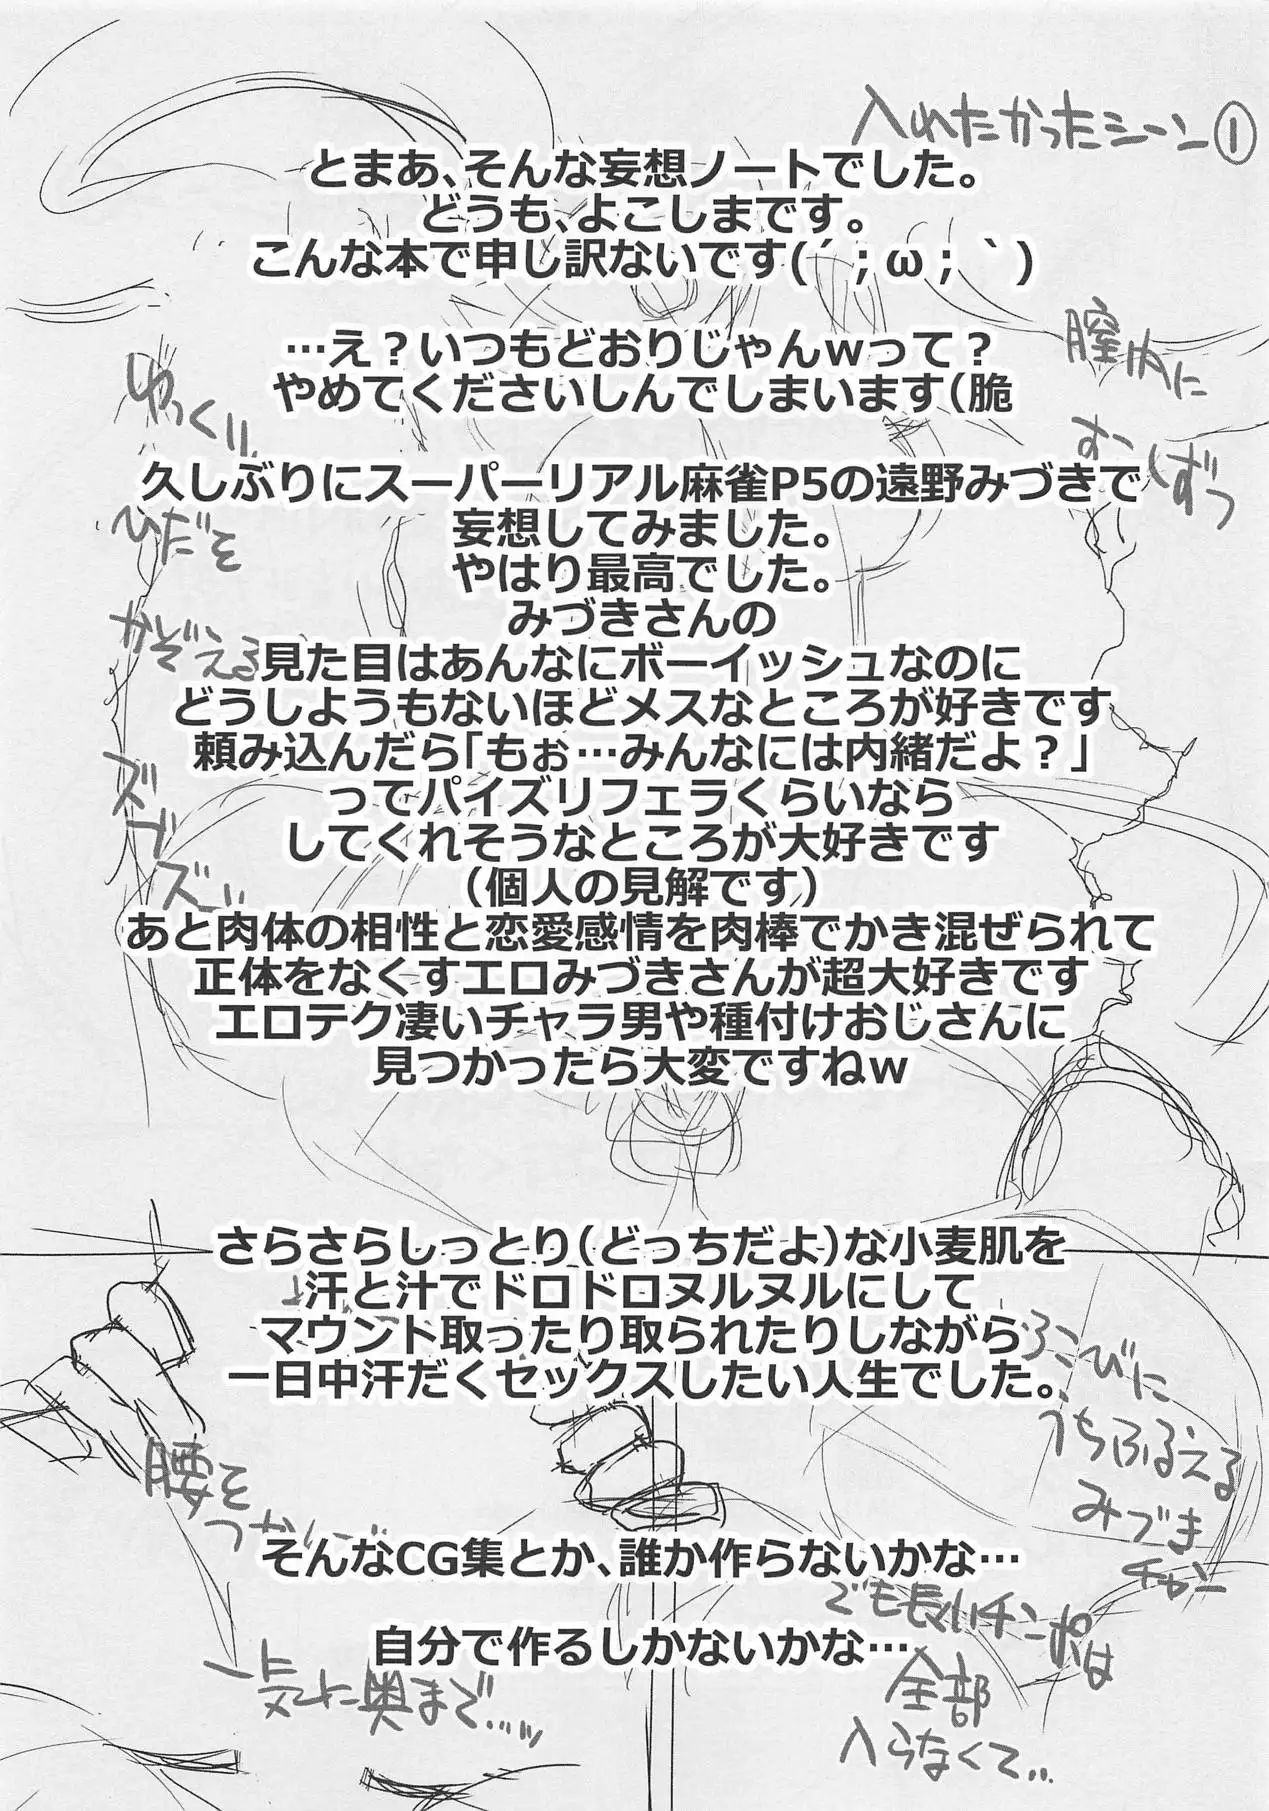 入れたかったシーン①
とまあ、そんな妄想ノートでした。
どうも、よこしまです。
こんな本で申し訳ないです(´；ω；｀)
…え？いつもどおりじゃんwって？
やめてくださいしんでしまいます(脆
膣内に
ゆっくり
久しぶりにスーパーリアル麻雀P5の遠野みづきで
妄想してみました。
やはり最高でした。
みづきさんの
見た目はあんなにボーイッシュなのに
どうしようもないほどメスなところが好きです
頼み込んだら「もぉ…みんなには内緒だよ？」
ってパイズリフェラくらいなら
してくれそうなところが大好きです
（個人の見解です）
あと肉体の相性と恋愛感情を肉棒でかき混ぜられて
正体をなくすエロみづきさんが超大好きです
エロテク凄いチャラ男や種付けおじさんに
見つかったら大変ですねw
ひだを
かぞえる
ズブズ…
さらさらしっとり（どっちだよ）な小麦肌を
汗と汁でドロドロヌルヌルにして
マウント取ったり取られたりしながら
一日中汗だくセックスしたい人生でした。
よろこびに
うちふるえる
みづき
チャン
腰を
そんなCG集とか、誰か作らないかな…
自分で作るしかないかな…
一気に奥まで…
でも長いチンポは
全部
入らなくて…